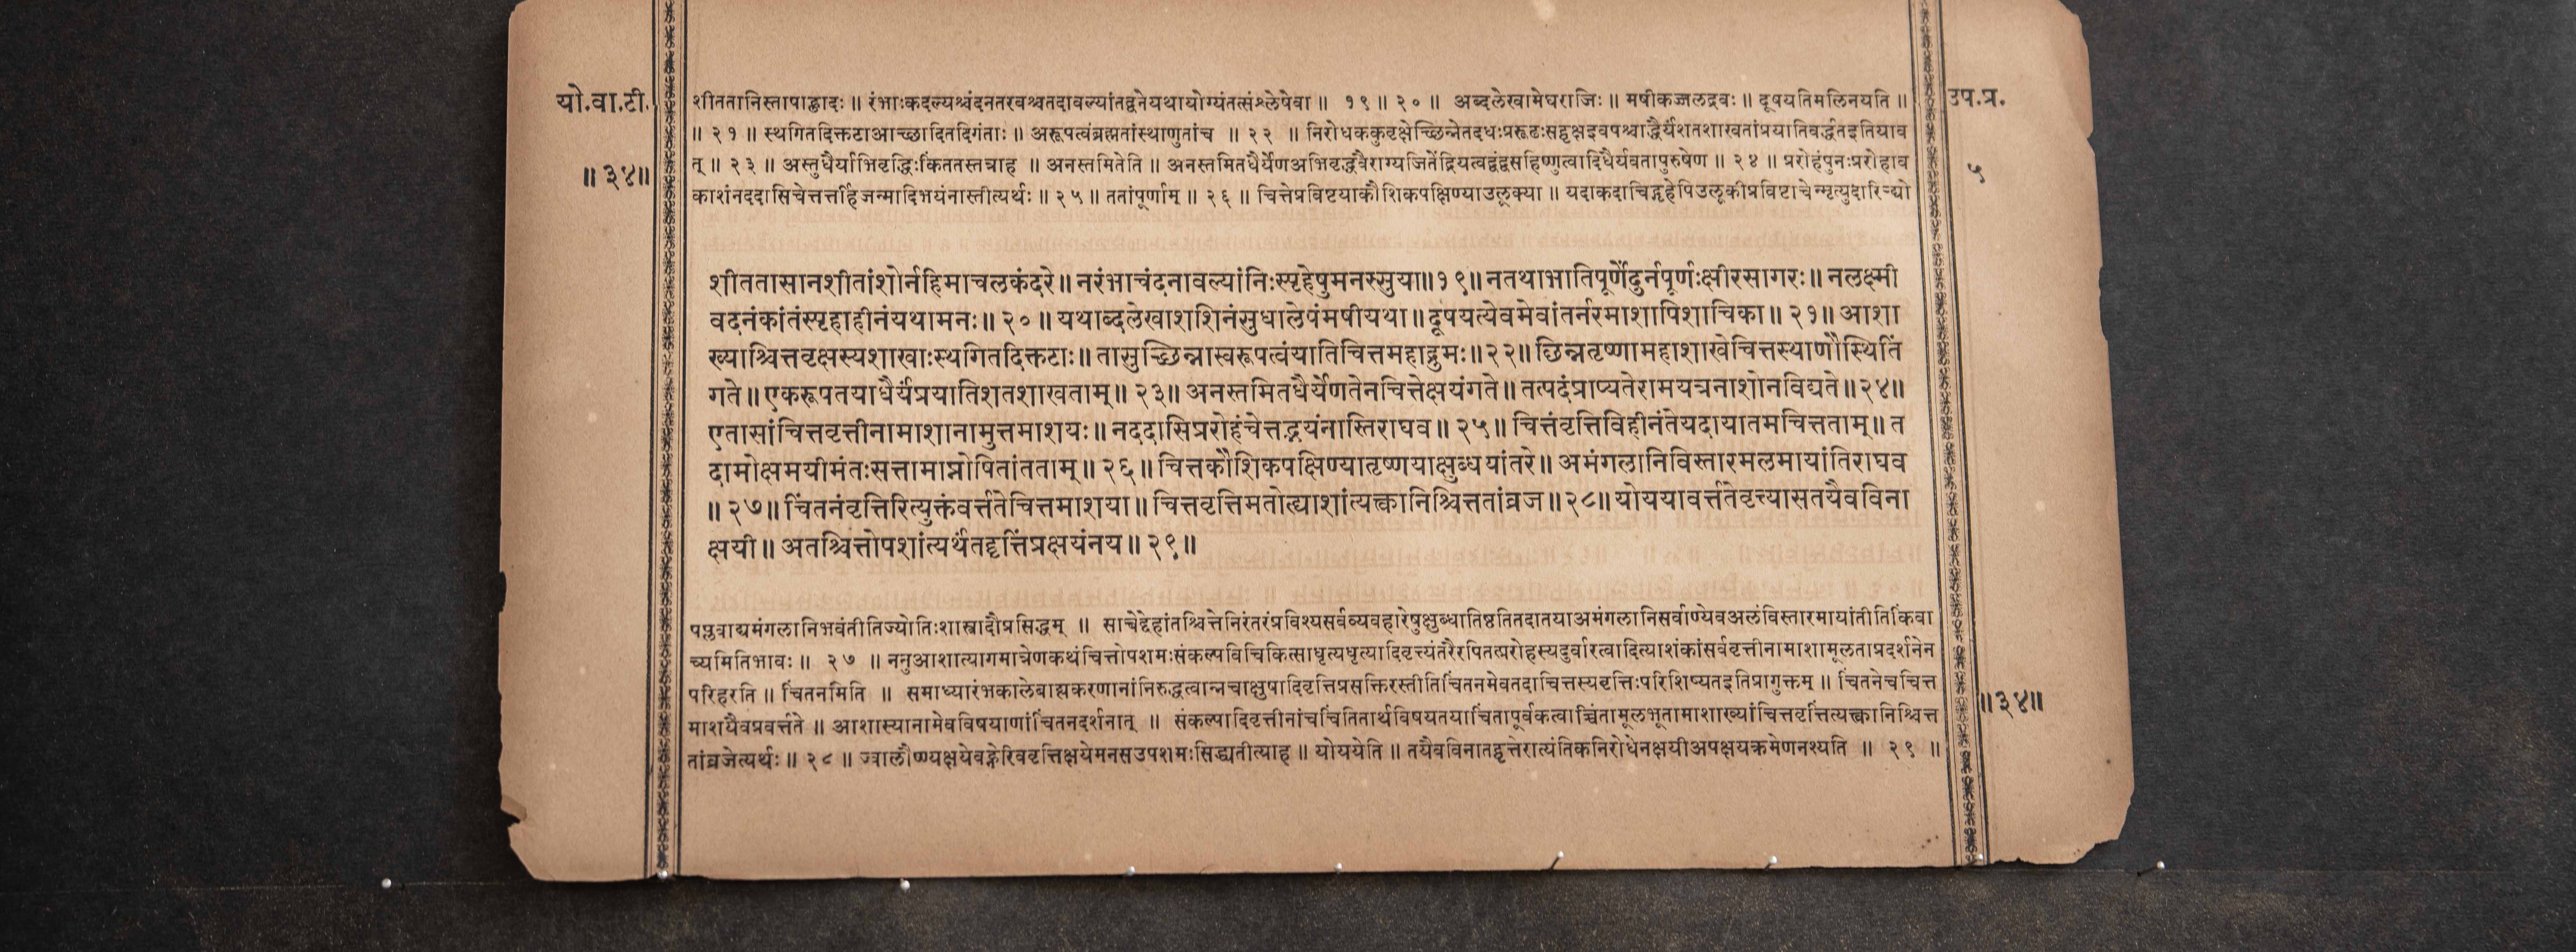 यो.वा.टी.
॥३४॥
शीततानिस्तापाह्लादः ॥ रंभाःकदल्यश्चंदनतरवश्चतदावल्यांतद्वनेयथायोग्यंतत्संश्लेषेवा ॥ १९ ॥ २० ॥ अब्दलेखामेघराजिः ॥ मषीकज्जलद्रवः ॥ दूषयतिमलिनयति ॥
॥ २१ ॥ स्थगितदिक्तटाआच्छादितदिगंताः ॥ अरूपत्वंब्रह्मतांस्थाणुतांच ॥ २२ ॥ निरोधककुवृक्षेच्छिन्नेतदधःप्ररूढःसद्वृक्षइवपश्चाद्धैर्यंशतशाखतांप्रयातिवर्द्धतइतियाव
त् ॥ २३ ॥ अस्तुधैर्याभिवृद्धिःकिंततस्तत्राह ॥ अनस्तमितेति ॥ अनस्तमितधैर्येणअभिवृद्धवैराग्यजितेंद्रियत्वद्वंद्वसहिष्णुत्वादिधैर्यवतापुरुषेण ॥ २४ ॥ प्ररोहंपुनःप्ररोहाव
काशंनददासिचेत्तर्त्तार्हिजन्मादिभयंनास्तीत्यर्थः ॥ २५ ॥ ततांपूर्णाम् ॥ २६ ॥ चित्तेप्रविष्टयाकौशिकपक्षिण्याउलूक्या ॥ यदाकदाचिद्गृहेपिउलूकीप्रविष्टाचेन्मृत्युदारिद्र्यो
उप.प्र.
५
शीततासानशीतांशोर्नहिमाचलकंदरे॥ नरंभाचंदनावल्यांनिःस्पृहेषुमनस्सुया॥१९॥ नतथाभातिपूर्णेंदुर्नपूर्णःक्षीरसागरः॥ नलक्ष्मी
वदनंकांतंस्पृहाहीनंयथामनः॥ २०॥ यथाब्दलेखाशशिनंसुधालेपंमषीयथा॥ दूषयत्येवमेवांतर्नरमाशापिशाचिका॥ २१॥ आशा
ख्याश्चित्तवृक्षस्यशाखाःस्थगितदिक्तटाः॥ तासुच्छिन्नास्वरूपत्वंयातिचित्तमहाद्रुमः॥२२॥ छिन्नतृष्णामहाशाखेचित्तस्थाणौस्थितिं
गते॥ एकरूपतयाधैर्यंप्रयातिशतशाखताम्॥ २३॥ अनस्तमितधैर्येणतेनचित्तेक्षयंगते॥ तत्पदंप्राप्यतेरामयत्रनाशोनविद्यते॥२४॥
एतासांचित्तवृत्तीनामाशानामुत्तमाशयः॥ नददासिप्ररोहंचेत्तद्भयंनास्तिराघव॥ २५॥ चित्तंवृत्तिविहीनंतेयदायातमचित्तताम्॥ त
दामोक्षमयीमंतःसत्तामाप्नोषितांतताम्॥ २६॥ चित्तकौशिकपक्षिण्यातृष्णयाक्षुब्धयांतरे॥ अमंगलानिविस्तारमलमायांतिराघव
॥ २७॥ चिंतनंवृत्तिरित्युक्तंवर्त्ततेचित्तमाशया॥ चित्तवृत्तिमतोह्याशांत्यक्त्वानिश्चित्ततांव्रज॥२८॥ योययावर्त्ततेवृत्त्यासतयैवविना
क्षयी॥ अतश्चित्तोपशांत्यर्थंतद्वृत्तिंप्रक्षयंनय॥ २९॥
पप्लवाद्यमंगलानिभवंतीतिज्योतिःशास्त्रादौप्रसिद्धम् ॥ साचेद्देहांतश्चित्तेनिरंतरंप्रविश्यसर्वव्यवहारेषुक्षुब्धातिष्ठतितदातयाअमंगलानिसर्वाण्येवअलंविस्तारमायांतीतिकिंवा
च्यमितिभावः ॥ २७ ॥ ननुआशात्यागमात्रेणकथंचित्तोपशमःसंकल्पविचिकित्साधृत्यधृत्यादिवृत्त्यंतरैरपितत्प्ररोहस्यदुर्वारत्वादित्याशंकांसर्ववृत्तीनामाशामूलताप्रदर्शनेन
परिहरति ॥ चिंतनमिति ॥ समाध्यारंभकालेबाह्यकरणानांनिरुद्धत्वान्नचाक्षुषादिवृत्तिप्रसक्तिरस्तीतिचिंतनमेवतदाचित्तस्यवृत्तिःपरिशिष्यतइतिप्रागुक्तम् ॥ चिंतनेचचित्त
माशयैवप्रवर्त्तते ॥ आशास्यानामेवविषयाणांचिंतनदर्शनात् ॥ संकल्पादिवृत्तीनांचचिंतितार्थविषयतयाचिंतापूर्वकत्वाच्चिंतामूलभूतामाशाख्यांचित्तवृत्तिंत्यक्त्वानिश्चित्त
तांव्रजेत्यर्थः ॥ २८ ॥ ज्वालौष्ण्यक्षयेवह्नेरिववृत्तिक्षयेमनसउपशमःसिद्ध्यतीत्याह ॥ योययेति ॥ तयैवविनातद्वृत्तेरात्यंतिकनिरोधेनक्षयीअपक्षयक्रमेणनश्यति ॥ २९ ॥
॥३४॥